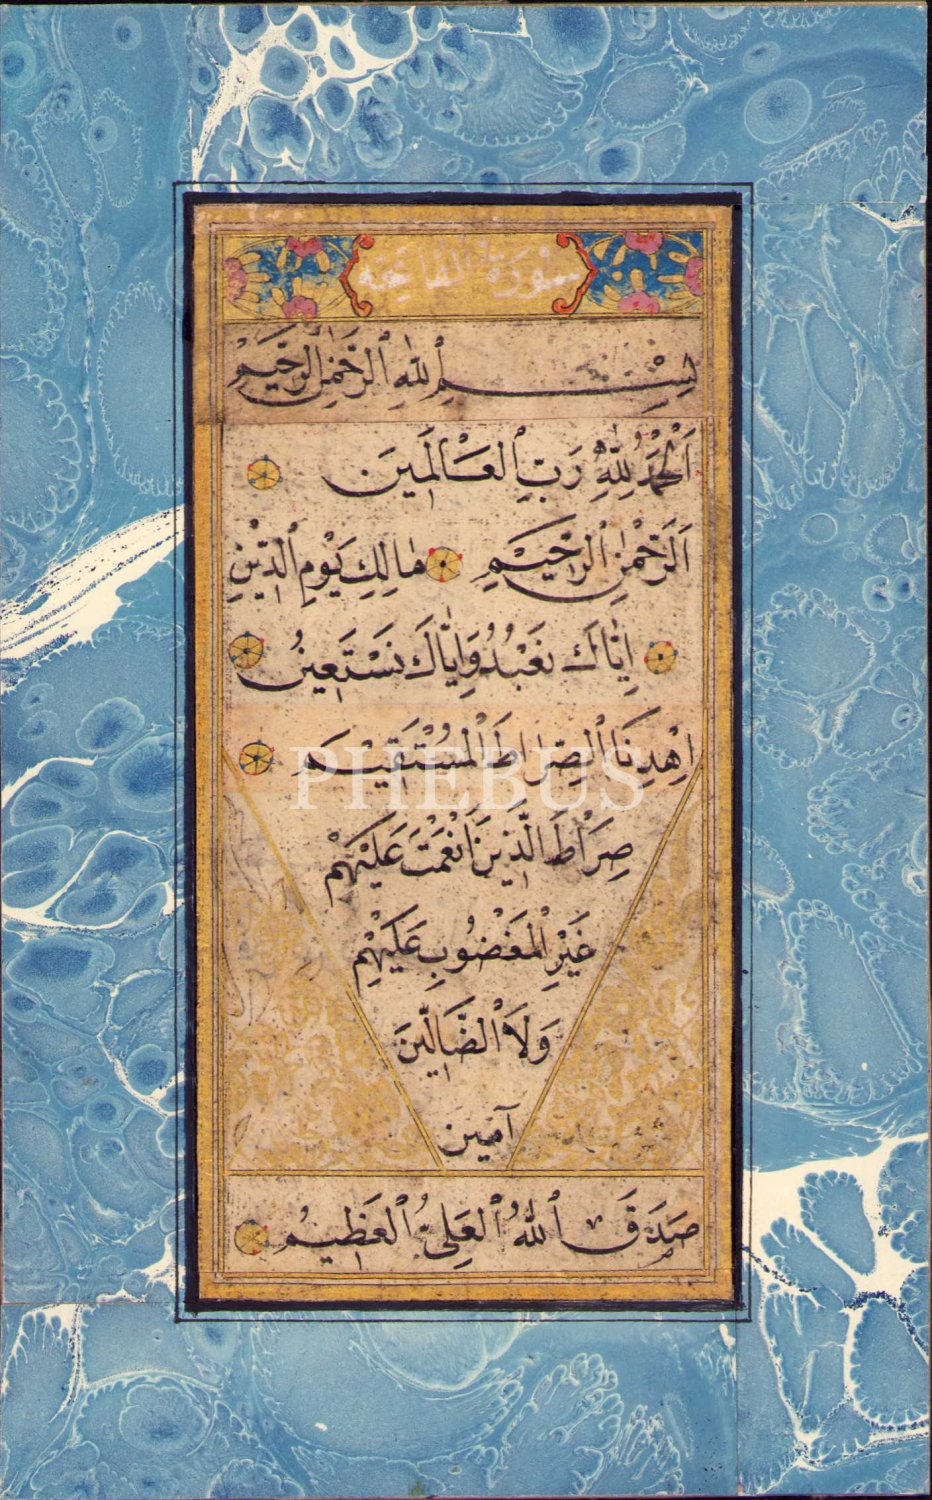 سُورَةُ الفَاتِحَة
بِسْمِ ٱللهِ ٱلرَّحْمٰنِ ٱلرَّحِيمِ
اَلْحَمْدُ لِلّٰهِ رَبِّ ٱلعَالَمِينَ
اَلرَّحْمٰنِ ٱلرَّحِيْمِ مَالِكِ يَوْمِ ٱلدِّيْنِ
اِيَّاكَ نَعْبُدُ وَاِيَّاكَ نَسْتَعِينُ
اِهْدِنَا ٱلصِّرَاطَ ٱلْمُسْتَقِيْمَ
PHEBUS
صِرَاطَ الَّذِينَ اَنْعَمْتَ عَلَيْهِمْ
غَيْرِ الْمَغْضُوبِ عَلَيْهِمْ
وَلَا ٱلضَّالِّينَ
آمين
صَدَقَ ٱللهُ ٱلعَلِيُّ ٱلعَظِيمُ